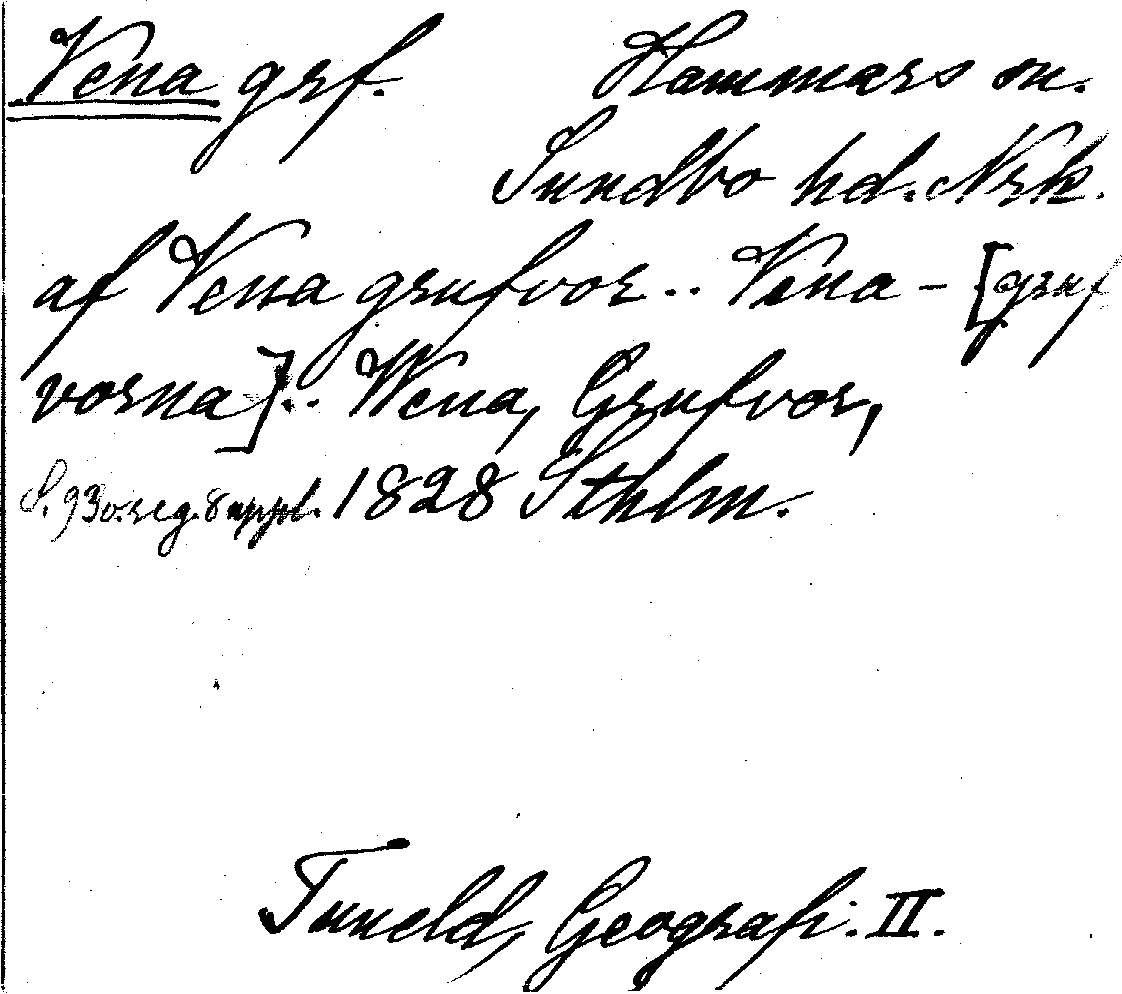 Vena grf. Hammars sn.
Sundbo hd. Nrk.
af Vena grufvor.. Vena - [gruf
vorna].. Wena, Grufvor,
S. 93 o. reg. 8 uppl. 1828 Sthlm.
Tuneld, Geografi. II.